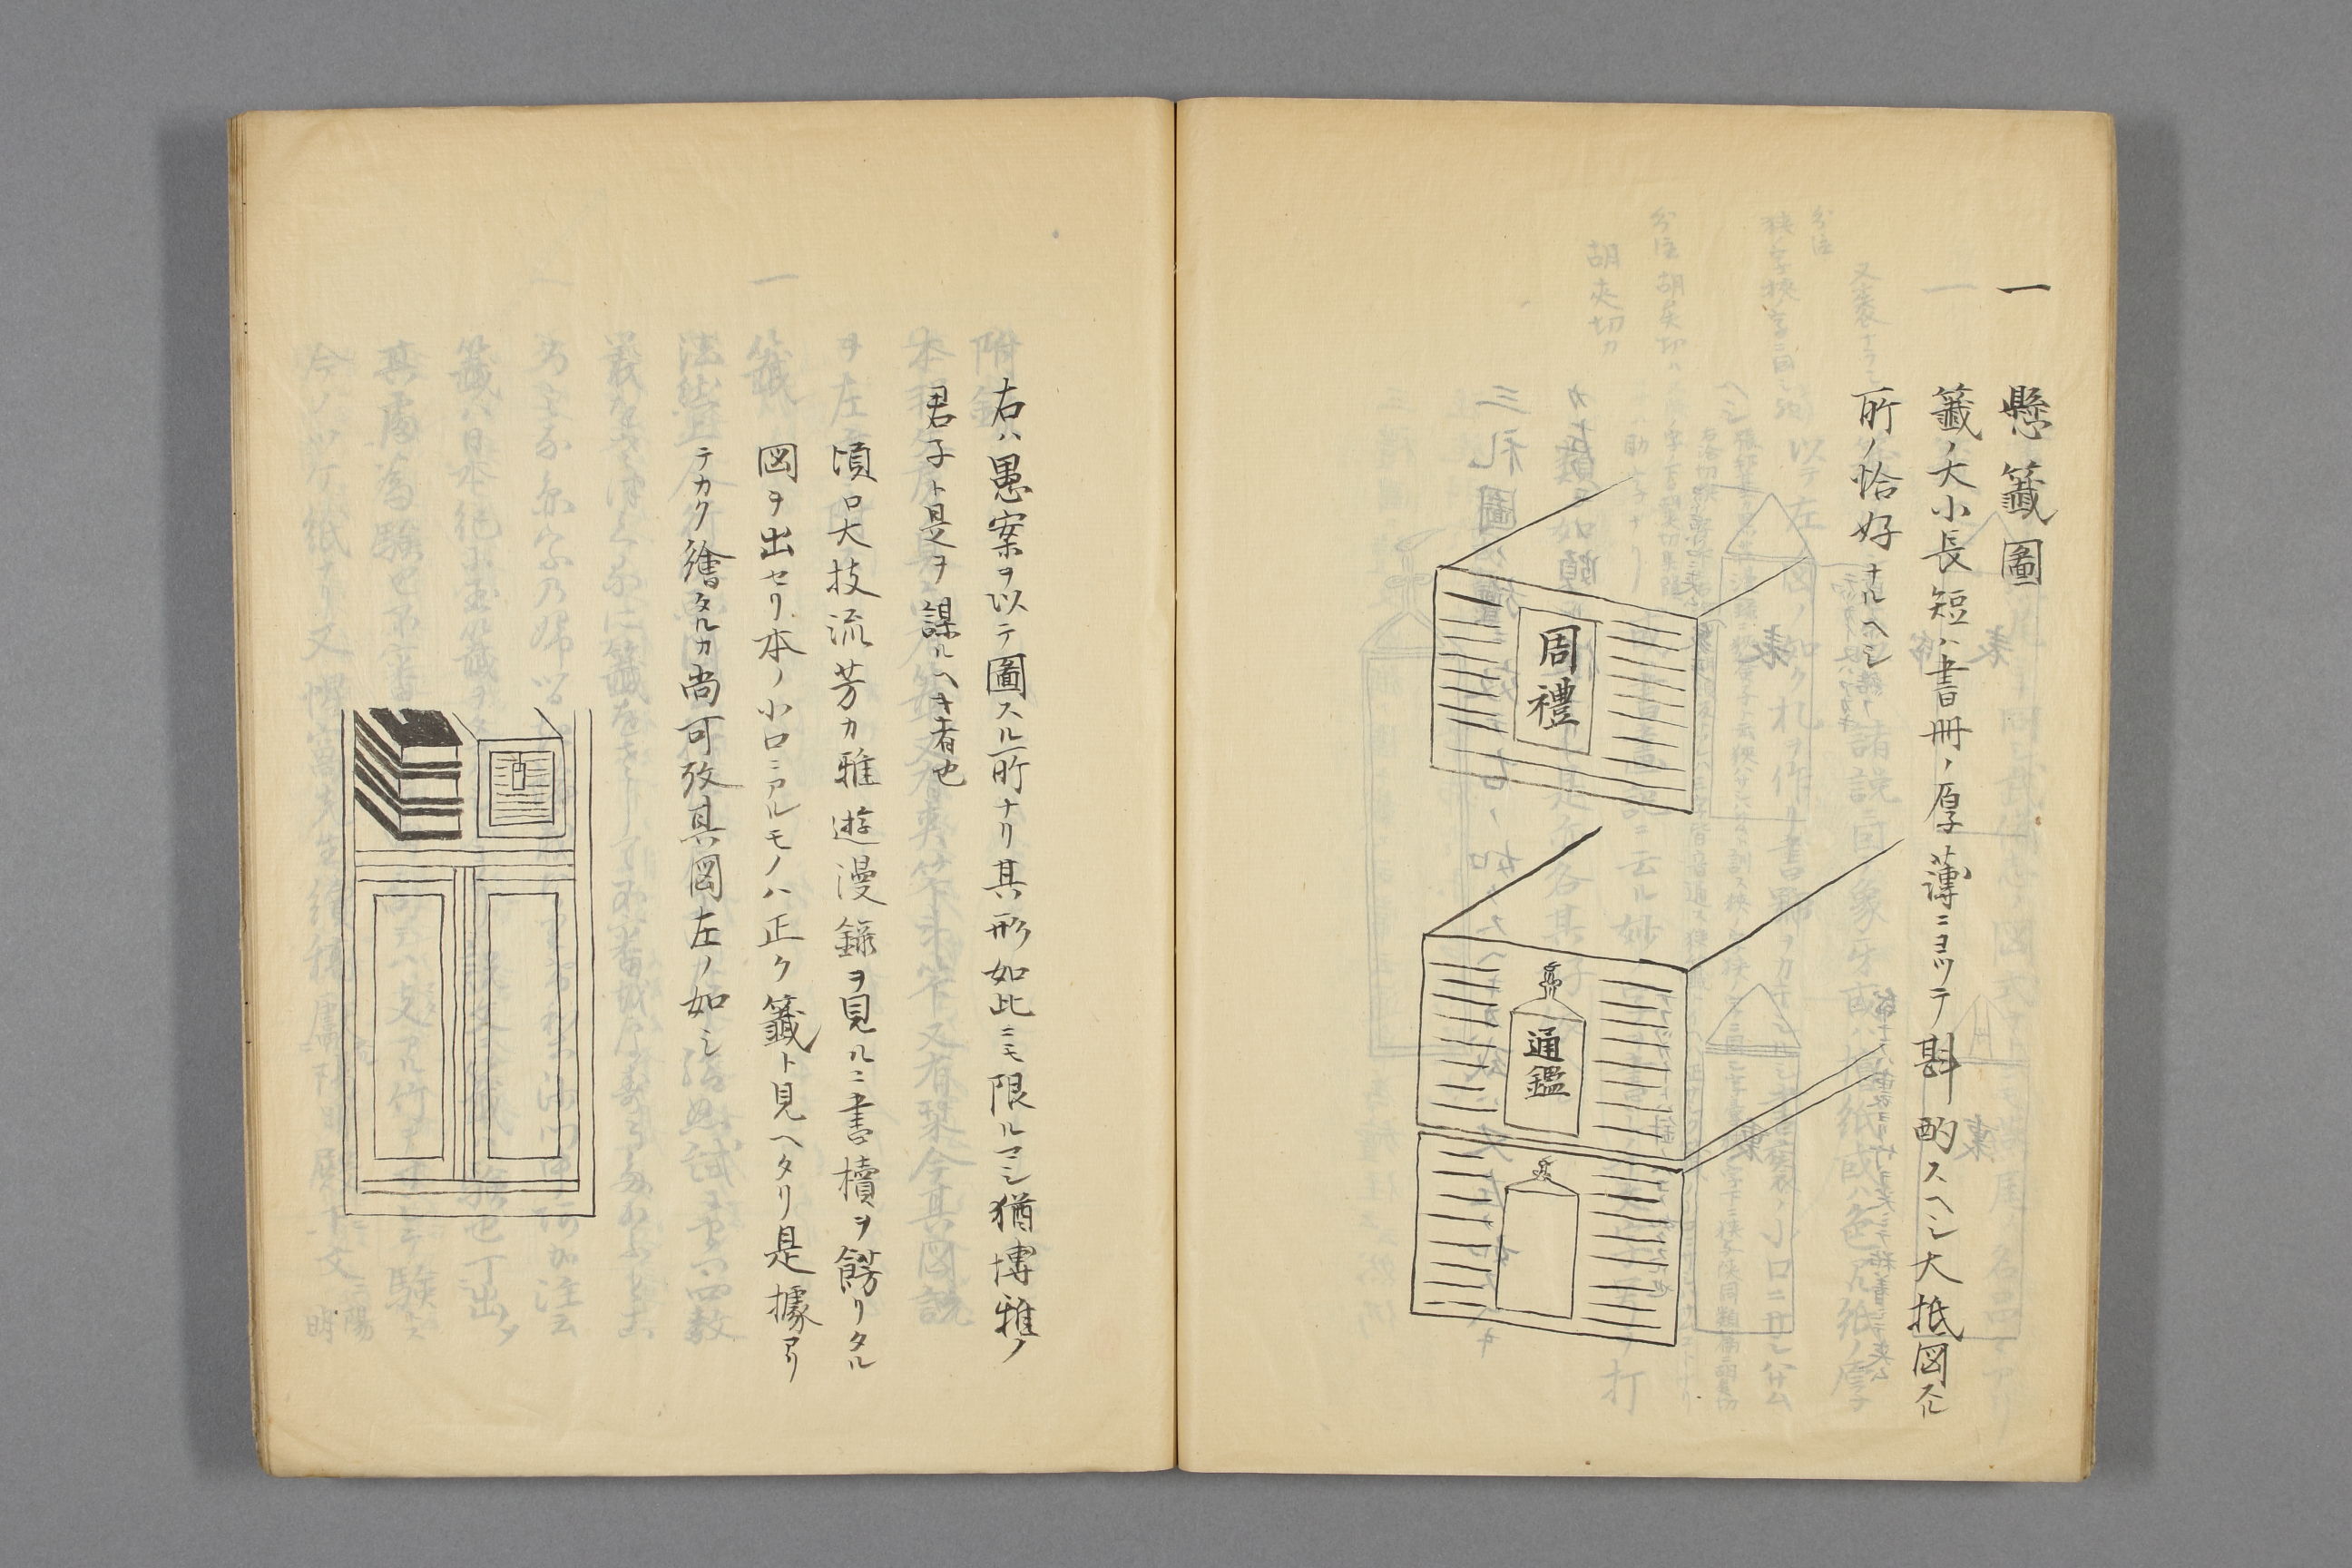 一
懸籤圖
籤ノ大小長短ハ書冊ノ厚薄ニヨツテ斟酌スヘシ大抵図スル
所ノ恰好ナルヘシ
周禮
通鑑
右ハ愚案ヲ以テ圖スル所ナリ其形如此ニモ限ルマシ猶博雅ノ
君子ト是ヲ謀ルヘキ者也
頃口大技流芳カ雅遊漫録ヲ見ルニ書櫝ヲ餝リタル
図ヲ出セリ本ノ小口ニアルモノハ正ク籤ト見ヘタリ是據アリ
テカク繪タルカ尚可攷其図左ノ如シ